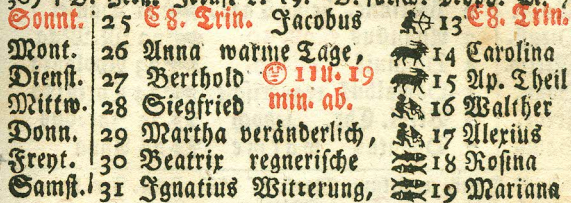 Sonnt. 25 C8. Trin. Jacobus 13 C8. Trin.
Mont. 26 Anna warme Tage, 14 Carolina
Dienst. 27 Berthold 11u. 19 15 Ap. Theil
Mittw. 28 Siegfried min. ab. 16 Walther
Donn. 29 Martha veränderlich, 17 Alexius
Freyt. 30 Beatrix regnerische 18 Rosina
Samst. 31 Ignatius Witterung, 19 Mariana